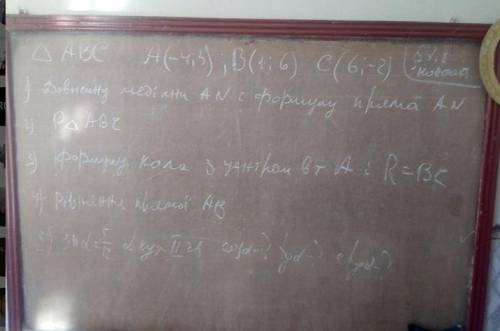 △ ABC A(-4;3); B(1;6) C(6;-2)
1) Довжину медіани AN і формулу прямої AN
2) P△ABC
3) Формулу кола з центром в т A і R=BC
4) Рівняння прямої AB
5) sin α = α кут II cosα-? tgα-? ctgα-?